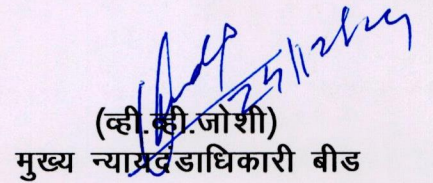 (व्ही.व्ही.जोशी)
मुख्य न्यायदंडाधिकारी बीड